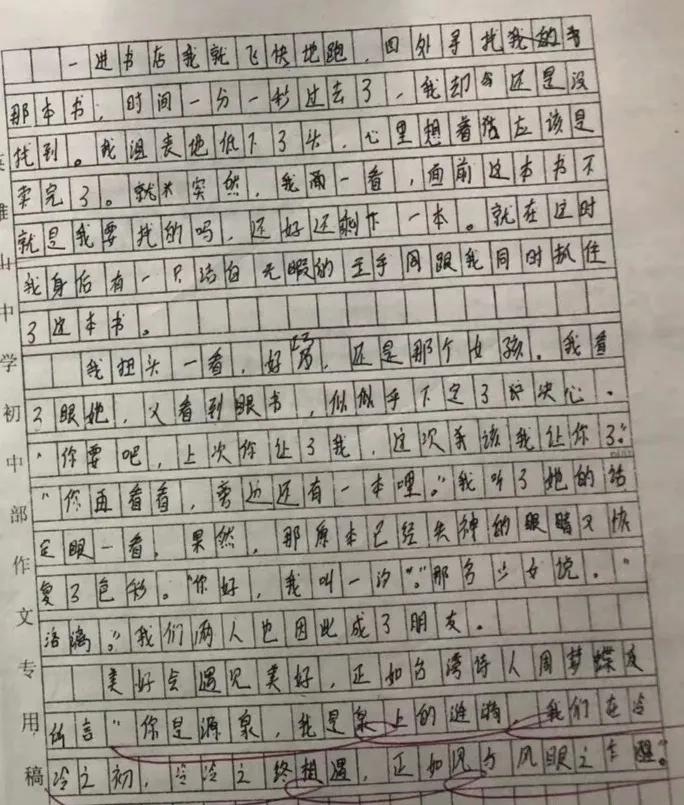 一进书店我就飞快地跑，四处寻找我的
那本书，时间一分一秒过去了，我却还是没
找到。我沮丧地低下了头，心里想着估应该是
卖完了。就突然，我再一看，面前这本书不
就是我要找的吗，还好还剩下一本。就在这时
我身后有一只洁白无暇的玉手同跟我同时抓住
了这本书。
我扭头一看，好巧，还是那个女孩。我看
了眼她，又看到眼书，似似乎下定了决心。
"你要吧，上次你让了我，这次该我让你了。"
"你再看看，旁边还有一本哩。"我听了她的话
定眼一看，果然，那原本已经失神的眼睛又恢
复了色彩。"你好，我叫一汐。"那名少女说。"
洛漓。"我们俩人也因此成了朋友。
美好会遇见美好，正如台湾诗人周梦蝶友
所言"你是源泉，我是泉上的涟漪，我们在冷
冷之初，冷冷之终相遇，正如风与风眼之乍醒。"
山中学初中部作文专用稿